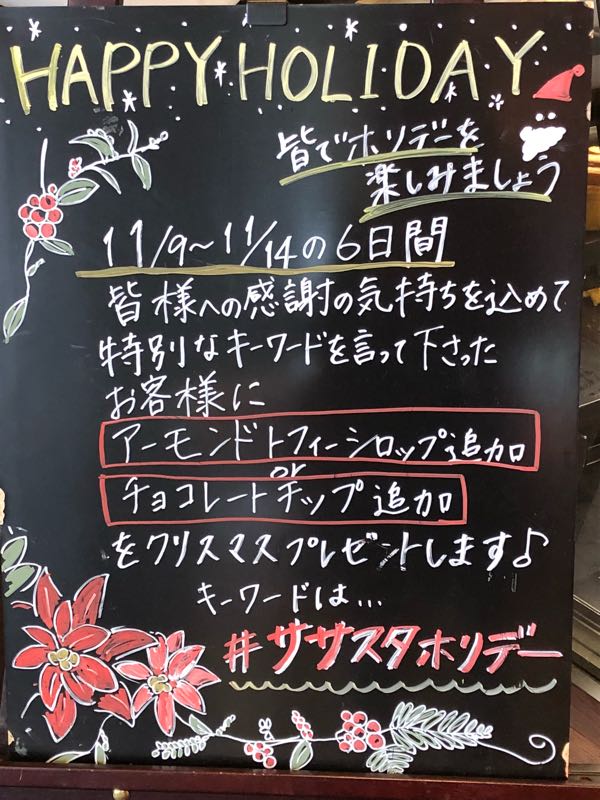 HAPPY HOLIDAY
皆でホリデーを
楽しみましょう
11/9～11/14の6日間
皆様への感謝の気持ちを込めて
特別なキーワードを言って下さった
お客様に
アーモンドトフィーシロップ追加
or
チョコレートチップ追加
をクリスマスプレゼントします♪
キーワードは...
#ササスタホリデー